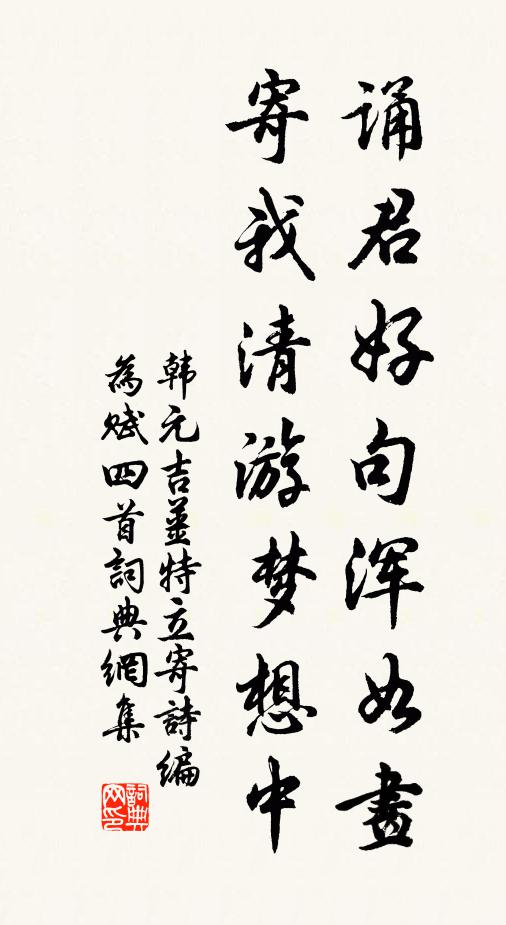 诵君好句浑如畫
寄我清游梦想中
韩元吉姜特立寄詩编
為赋四首詞典網集
詞典网印